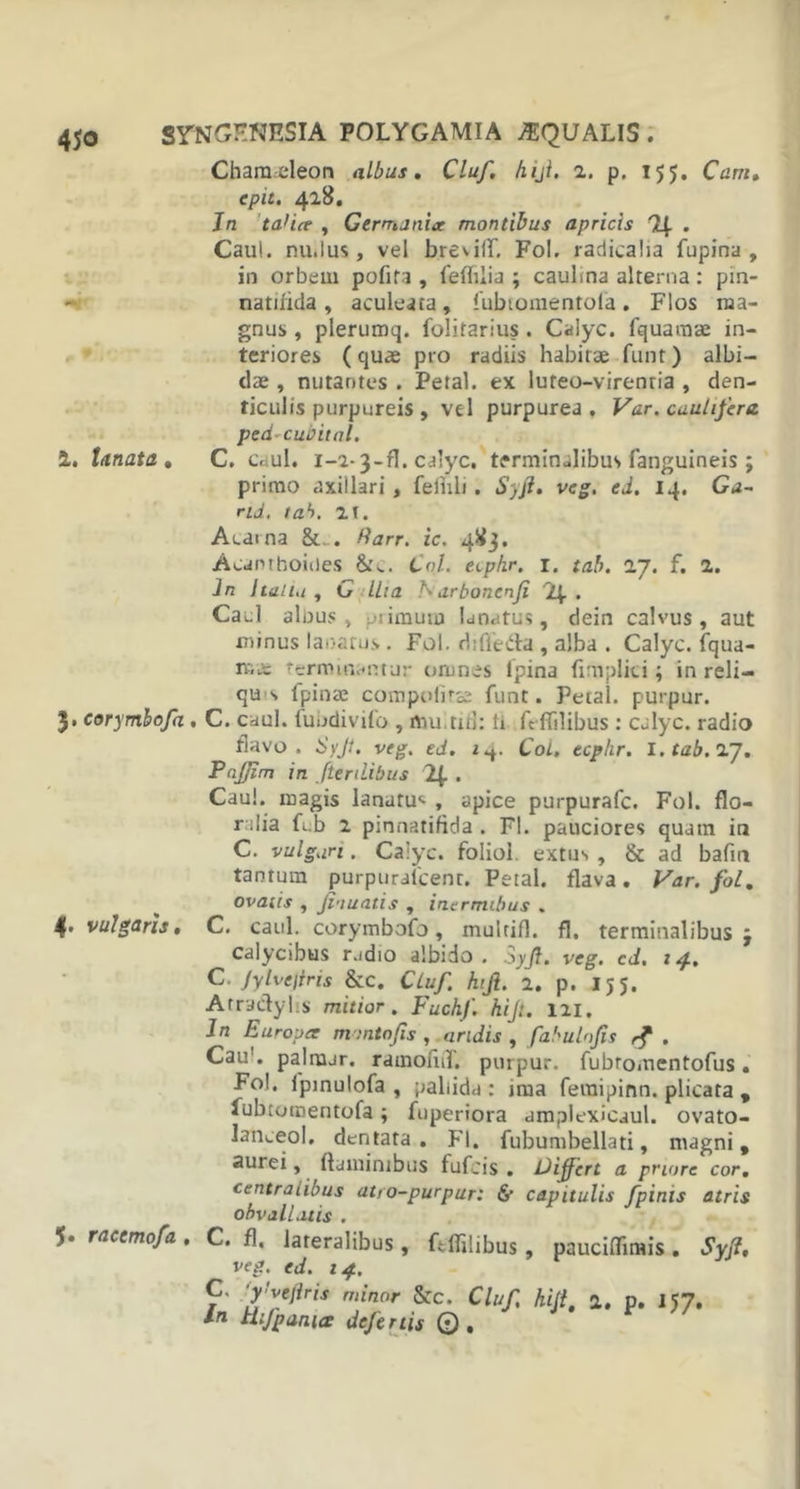 450 SYNGENESIA POLYGAMIA ÆQUALIS.
Chamæleon albus. Cluſ. hiſt. 2. p. 155. Cam.
epit. 428.
In Italiæ, Germaniæ montibus apricis ♃.
Caul. nullus, vel breviſſ. Fol. radicalia ſupina,
in orbem poſita, ſeſſilia; caulina alterna: pin-
natifida, aculeata, ſubtomentoſa. Flos ma-
gnus, plerumq. ſolitarius. Calyc. ſquamæ in-
teriores (quæ pro radiis habitæ ſunt) albi-
dæ, nutantes. Petal. ex luteo-virentia, den-
ticulis purpureis, vel purpurea. Var. caulifera
ped-cubital.
2. lanata. C. caul. 1-2-3-fl. calyc. terminalibus ſanguineis;
primo axillari, ſeſſili. Syſt. veg. ed. 14. Ga-
rid. tab. 21.
Acarna &.. Barr. ic. 483.
Acanthoides &c. Col. ecphr. 1. tab. 27. f. 2.
In Italia, Gallia Narbonenſi ♃.
Caul albus, primum lanatus, dein calvus, aut
minus lanatus. Fol. difſecta, alba. Calyc. ſqua-
mæ terminantur omnes ſpina ſimplici; in reli-
quis ſpinæ compoſitæ ſunt. Petal. purpur.
3. corymboſa. C. caul. ſubdiviſo, multifl: fl ſeſſilibus: calyc. radio
flavo. Syſt. veg. ed. 14. Col. ecphr. 1. tab. 27.
Paſſim in ſterilibus ♃.
Caul. magis lanatus, apice purpuraſc. Fol. flo-
ralia ſub 2 pinnatifida. Fl. pauciores quam in
C. vulgari. Calyc. foliol. extus, & ad baſin
tantum purpuraſcent. Petal. flava. Var. fol.
ovatis, ſinuatis, inermibus.
4. vulgaris. C. caul. corymboſo, multifl. fl. terminalibus;
calycibus radio albido. Syſt. veg. ed. 14.
C. ſylveſtris &c. Cluſ. hiſt. 2. p. 155.
Atractylis mitior. Fuchſ. hiſt. 121.
In Europæ montoſis, aridis, ſabuloſis ♂.
Caul. palmar. ramoſiſſ. purpur. ſubtomentoſus.
Fol. ſpinuloſa, pallida: ima ſemipinn. plicata,
ſubtomentoſa; ſuperiora amplexicaul. ovato-
lanceol. dentata. Fl. ſubumbellati, magni,
aurei, ſtaminibus fuſcis. Differt a priore cor.
centralibus atro-purpur: & capitulis ſpinis atris
obvallatis.
5. racemoſa. C. fl. lateralibus, ſeſſilibus, pauciſſimis. Syſt.
veg. ed. 14.
C. ſylveſtris minor &c. Cluſ. hiſt. 2. p. 157.
In Hiſpaniæ deſertis ☉.